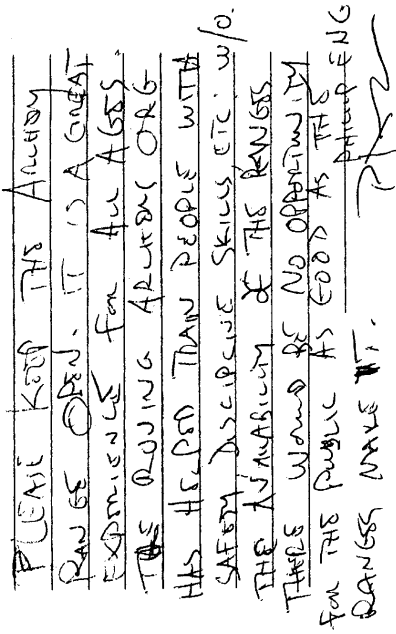 PLEASE KEEP THE ARCHERY
RANGE OPEN. IT IS A GREAT
EXPERIENCE FOR ALL AGES.
THE ROVING ARCHERS ORG
HAS HELPED TRAIN PEOPLE WITH
SAFETY DISCIPLINE SKILLS ETC. W/O.
THE AVAILABILITY OF THE RANGES
THERE WOULD BE NO OPPORTUNITY
FOR THE PUBLIC AS GOOD AS THE
RANGES MAKE IT.
PHILIP ENG